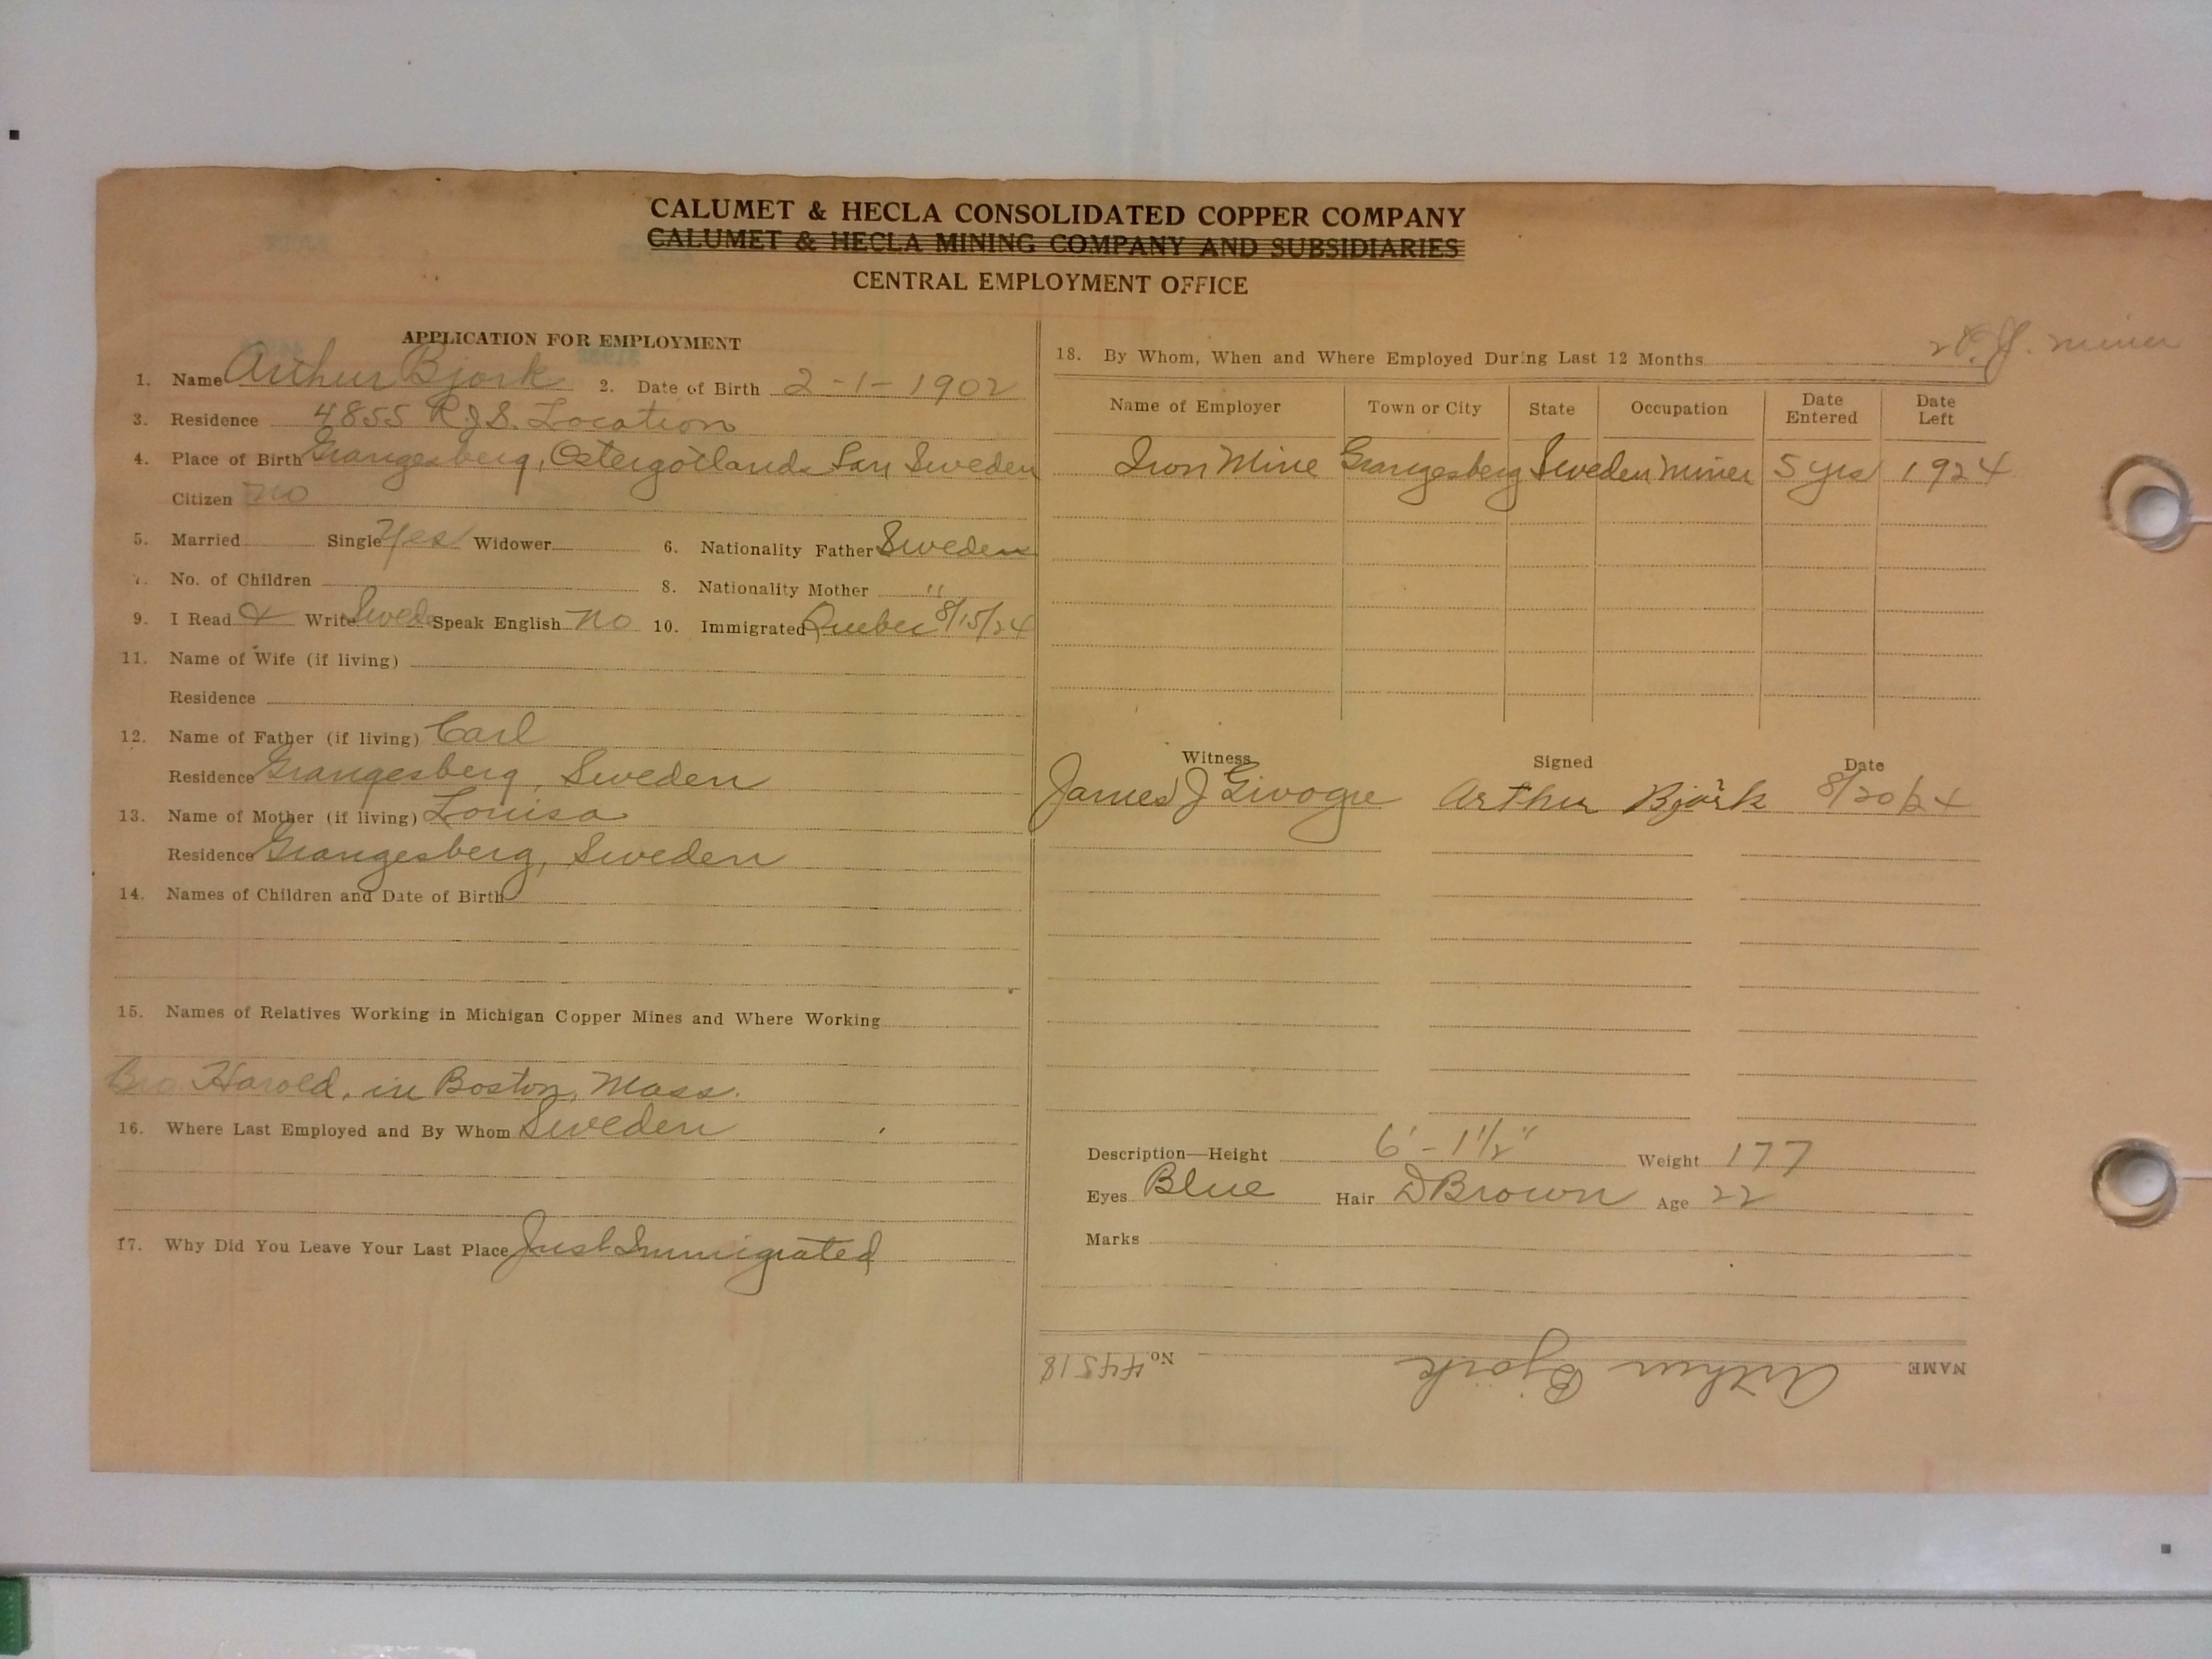 CALUMET & HECLA CONSOLIDATED COPPER COMPANY
CALUMET & HECLA MINING COMPANY AND SUBSIDIARIES
CENTRAL EMPLOYMENT OFFICE
APPLICATION FOR EMPLOYMENT
1. Name Arthur Bjork 2. Date of Birth 2-1-1902
3. Residence 4855 R.J.S. Location
4. Place of Birth Grangesberg, Ostergotlands Lan Sweden
Citizen no
5. Married Single Yes Widower 6. Nationality Father Sweden
7. No. of Children 8. Nationality Mother "
9. I Read & Write Swed Speak English No 10. Immigrated Quebec 8/15/24
11. Name of Wife (if living)
Residence
12. Name of Father (if living) Carl
Residence Grangesberg, Sweden
13. Name of Mother (if living) Louisa
Residence Grangesberg, Sweden
14. Names of Children and Date of Birth
15. Names of Relatives Working in Michigan Copper Mines and Where Working
Bro Harold, in Boston, Mass.
16. Where Last Employed and By Whom Sweden
17. Why Did You Leave Your Last Place Just Immigrated
miner
18. By Whom, When and Where Employed During Last 12 Months
Name of Employer Town or City State Occupation Date Entered Date Left
Iron Mine Grangesberg Sweden Miner 5 yrs 1924
Witness Signed Date
James J Arthur Björk 8/20/24
Description—Height 6'-1½" Weight 177
Eyes Blue Hair DBrown Age 22
Marks
NAME Arthur Bjork No. 44518